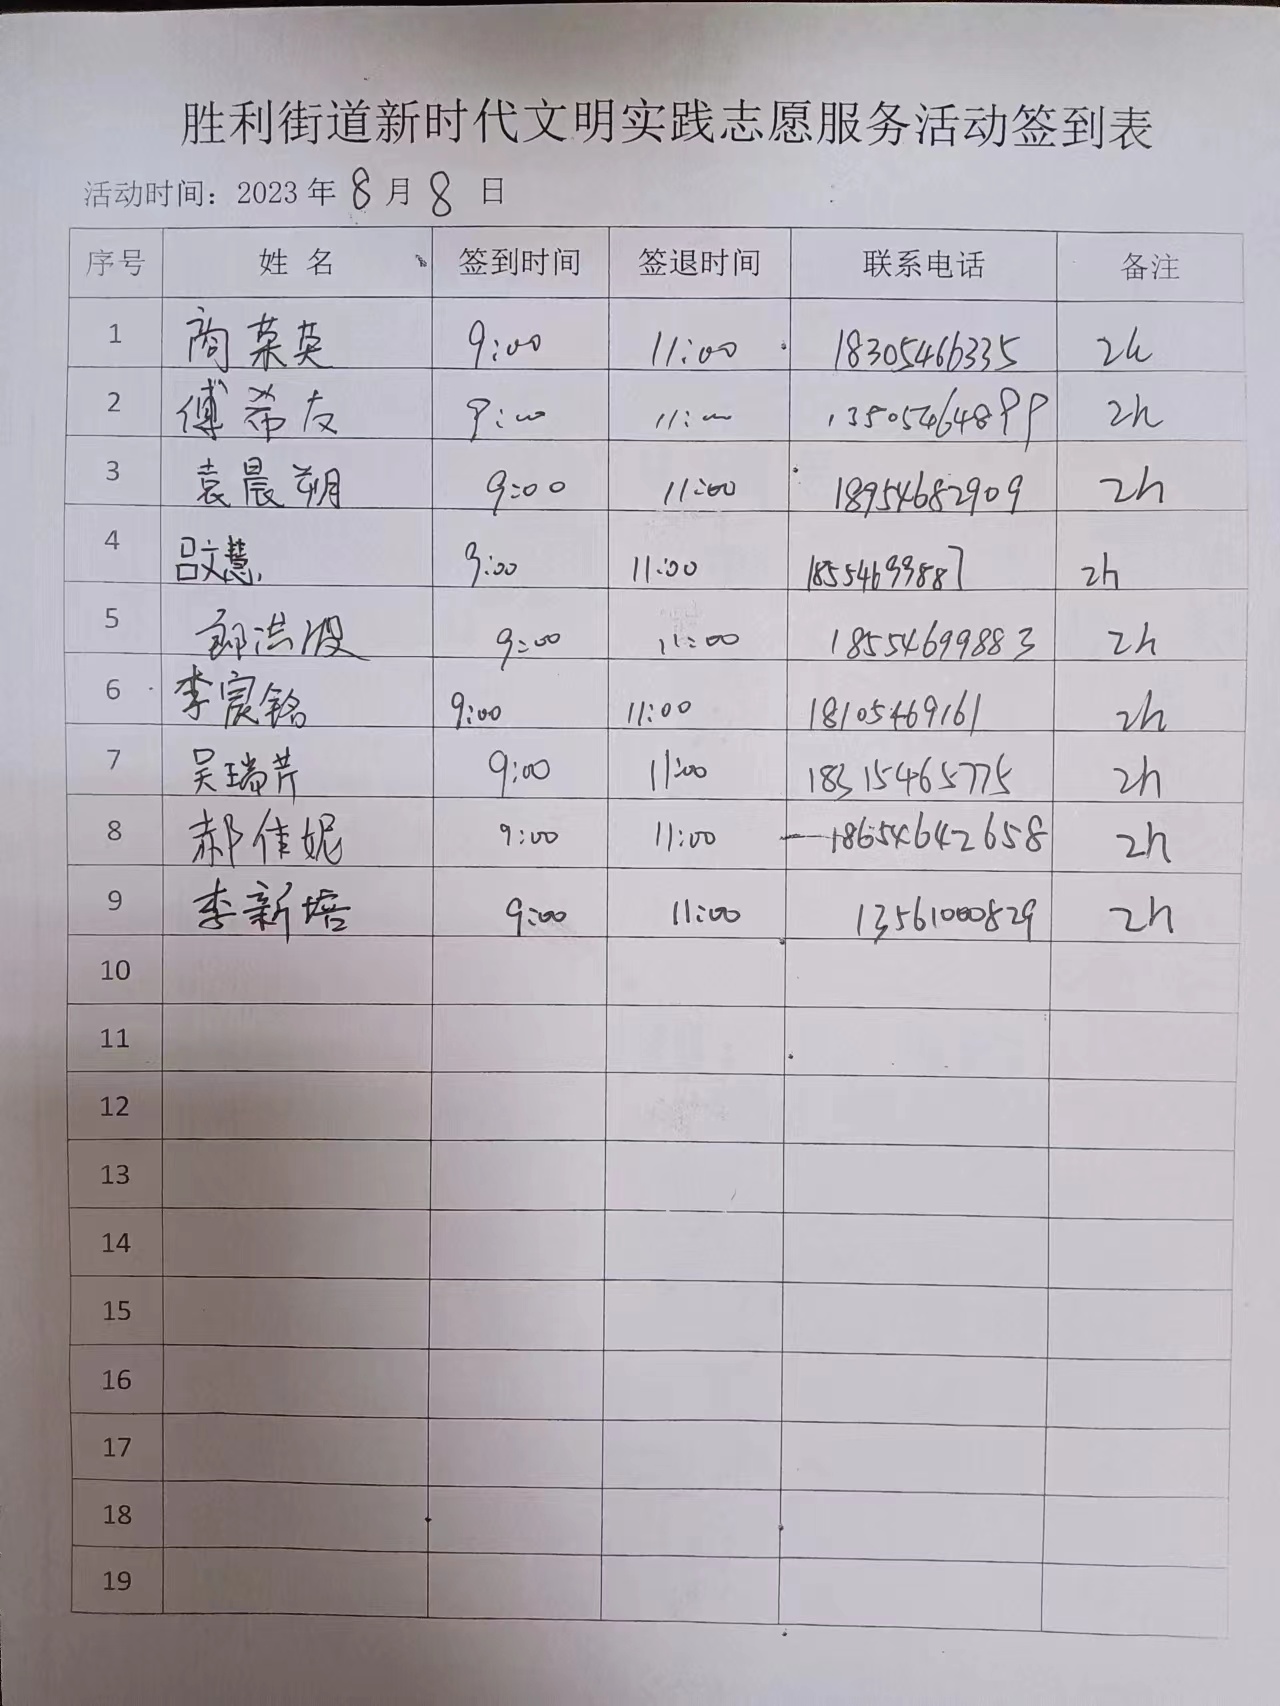 胜利街道新时代文明实践志愿服务活动签到表
活动时间：2023 年 8 月 8 日
序号 姓 名 签到时间 签退时间 联系电话 备注
1 商荣英 9:00 11:00 18305466335 2h
2 傅希友 9:00 11:00 13505464899 2h
3 袁晨朔 9:00 11:00 18954682909 2h
4 吕文慧 9:00 11:00 18554699887 2h
5 郭洪波 9:00 11:00 18554699883 2h
6 李宸铭 9:00 11:00 18105469161 2h
7 吴瑞芹 9:00 11:00 18315465775 2h
8 郝佳妮 9:00 11:00 18654642658 2h
9 李新培 9:00 11:00 13561000829 2h
10
11
12
13
14
15
16
17
18
19